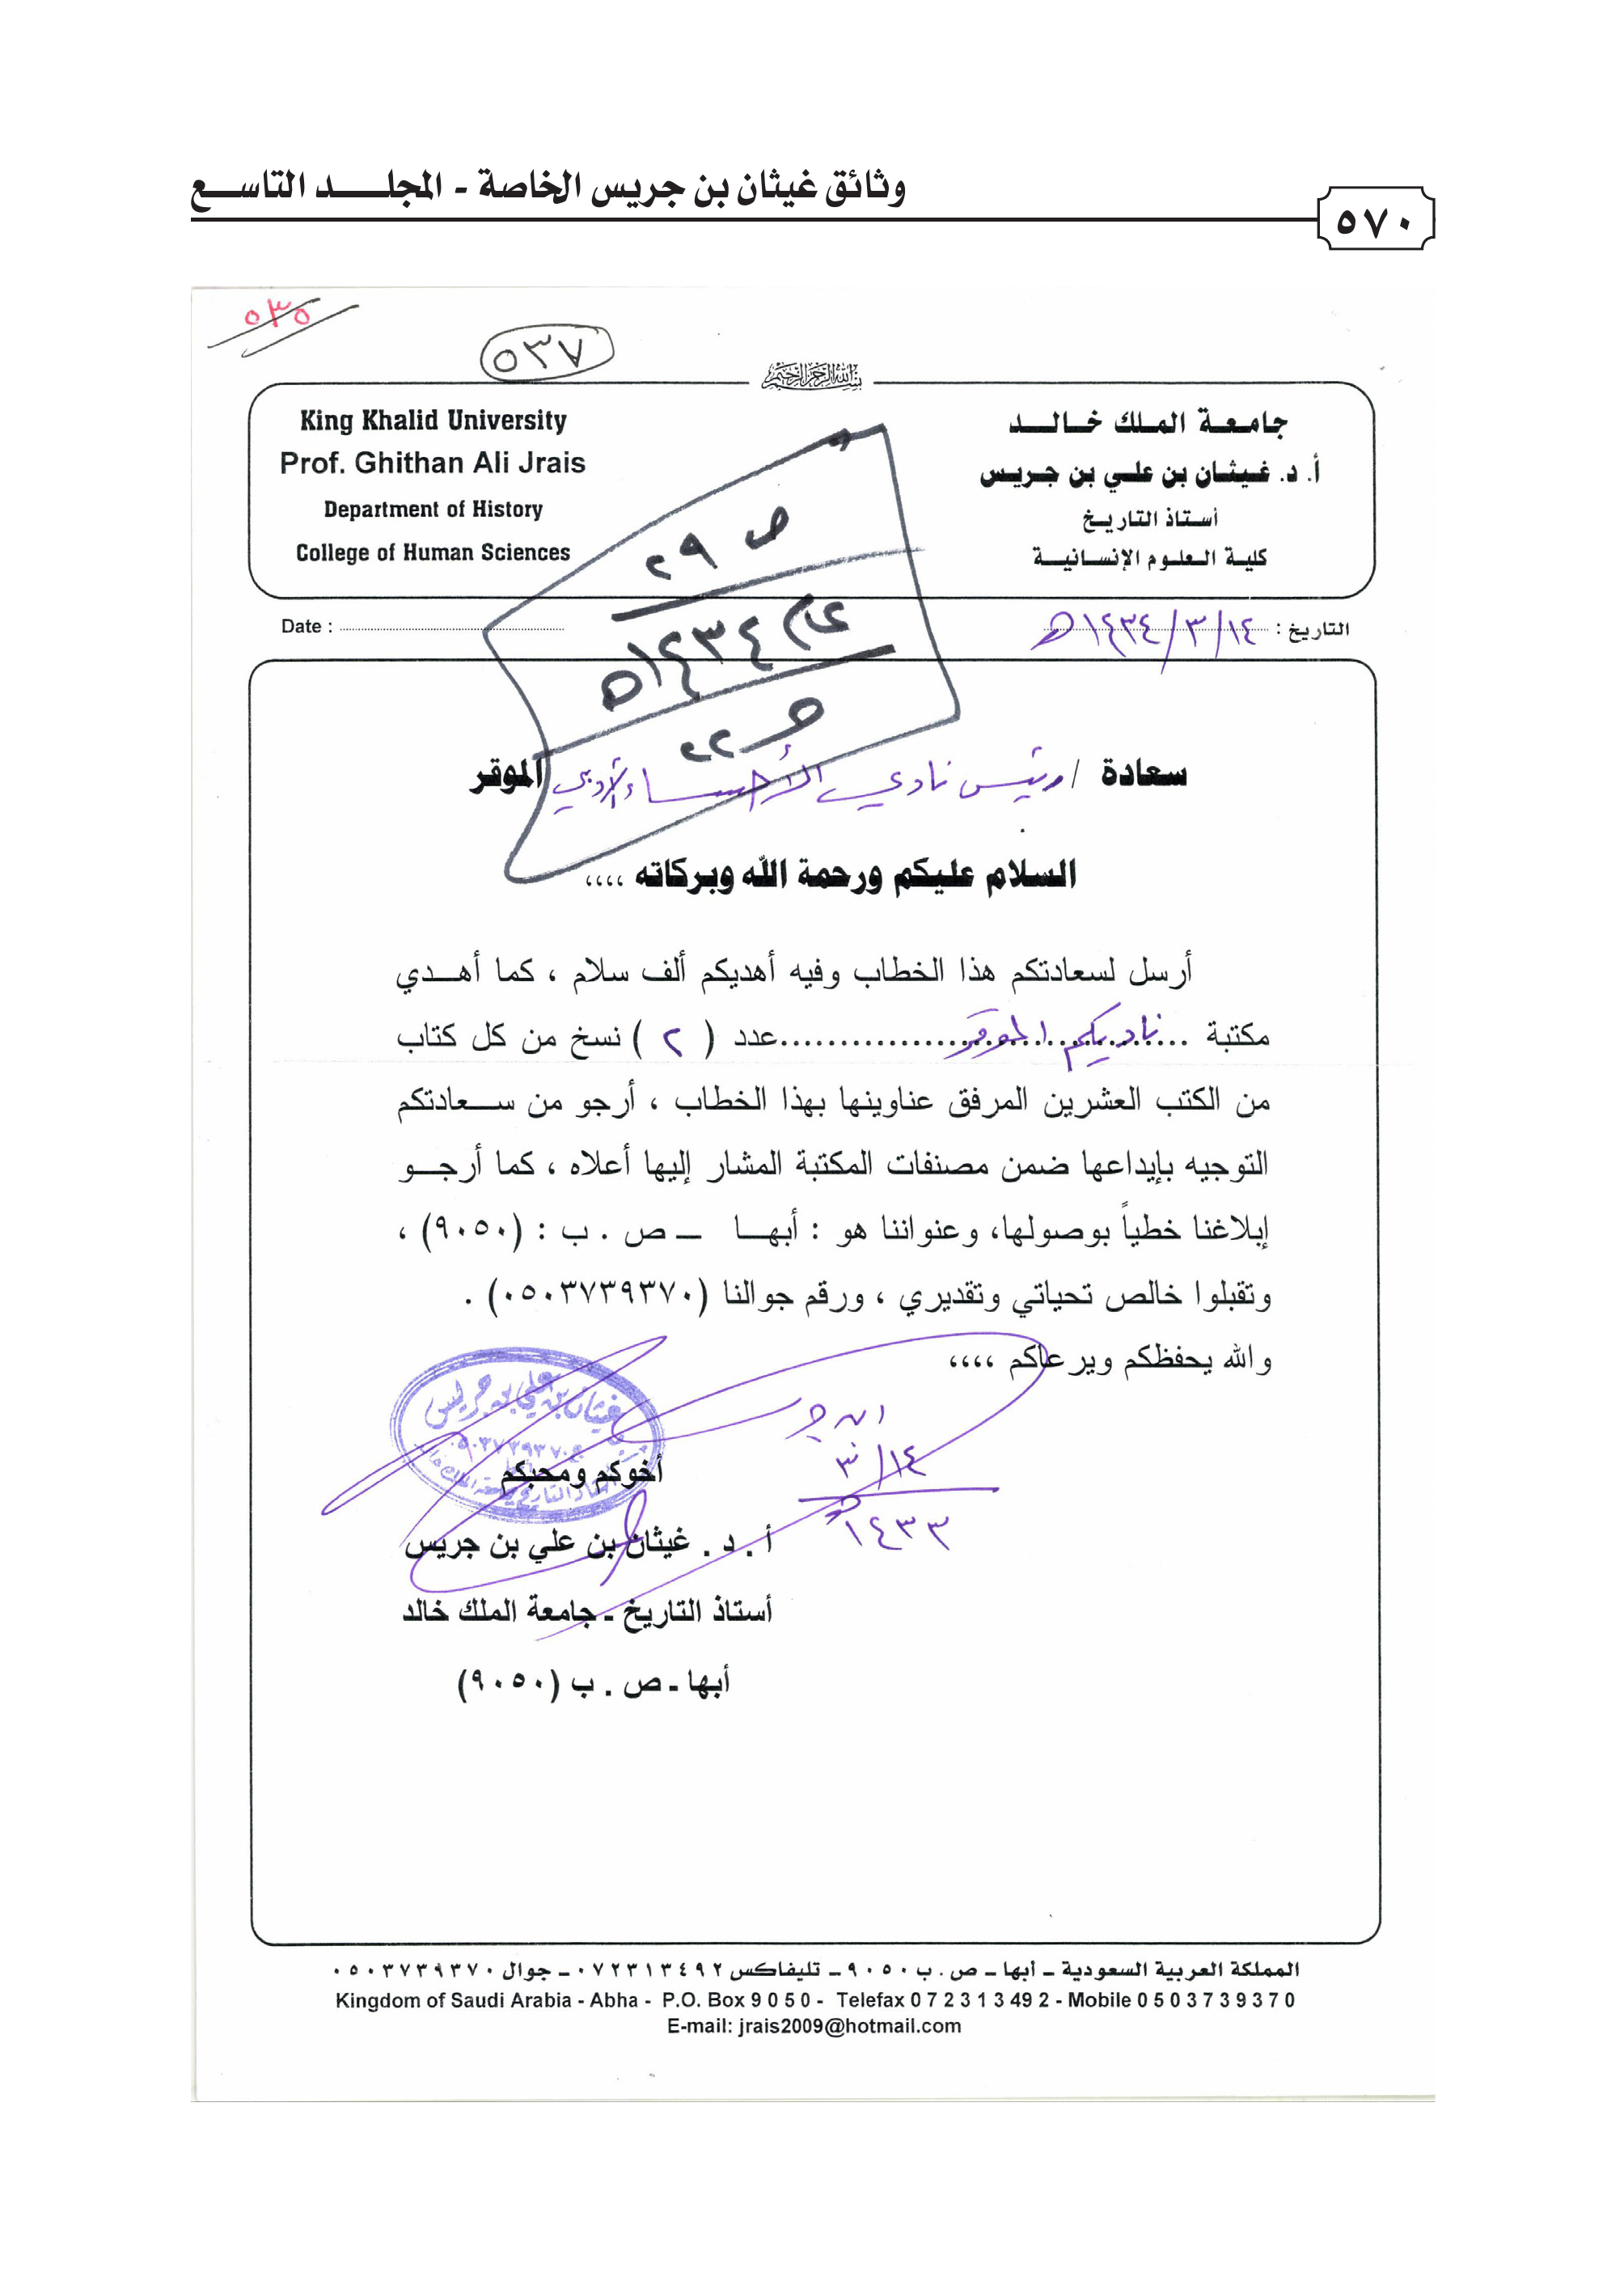 وثائق غيثان بن جريس الخاصة - المجلد التاسع
٥٧٠
٥٣٥
٥٣٧
بسم الله الرحمن الرحيم
جامعة الملك خالد
أ. د. غيثان بن علي بن جريس
أستاذ التاريخ
كلية العلوم الإنسانية
King Khalid University
Prof. Ghithan Ali Jrais
Department of History
College of Human Sciences
ص ٢٩
١٤٣٤هـ
ص ٢٢
التاريخ : ١٤/٣/١٤٣٤هـ
Date :
سعادة / رئيس نادي الأحساء الأدبي الموقر
السلام عليكم ورحمة الله وبركاته ،،،،
أرسل لسعادتكم هذا الخطاب وفيه أهديكم ألف سلام ، كما أهدي
مكتبة ... ناديكم الموقر ... عدد ( ٢ ) نسخ من كل كتاب
من الكتب العشرين المرفق عناوينها بهذا الخطاب ، أرجو من سعادتكم
التوجيه بإيداعها ضمن مصنفات المكتبة المشار إليها أعلاه ، كما أرجو
إبلاغنا خطياً بوصولها، وعنواننا هو : أبها ـ ص . ب : (٩٠٥٠) ،
وتقبلوا خالص تحياتي وتقديري ، ورقم جوالنا (٠٥٠٣٧٣٩٣٧٠) .
والله يحفظكم ويرعاكم ،،،،
غيثان بن علي بن جريس
٠٥٠٣٧٣٩٣٧٠
١٤/٣
١٤٣٣هـ
أخوكم ومحبكم
أ . د . غيثان بن علي بن جريس
أستاذ التاريخ ـ جامعة الملك خالد
أبها ـ ص . ب (٩٠٥٠)
المملكة العربية السعودية ـ أبها ـ ص . ب ٩٠٥٠ ـ تليفاكس ٠٧٢٣١٣٤٩٢ ـ جوال ٠٥٠٣٧٣٩٣٧٠
Kingdom of Saudi Arabia - Abha - P.O. Box 9 0 5 0 - Telefax 0 7 2 3 1 3 49 2 - Mobile 0 5 0 3 7 3 9 3 7 0
E-mail: jrais2009@hotmail.com